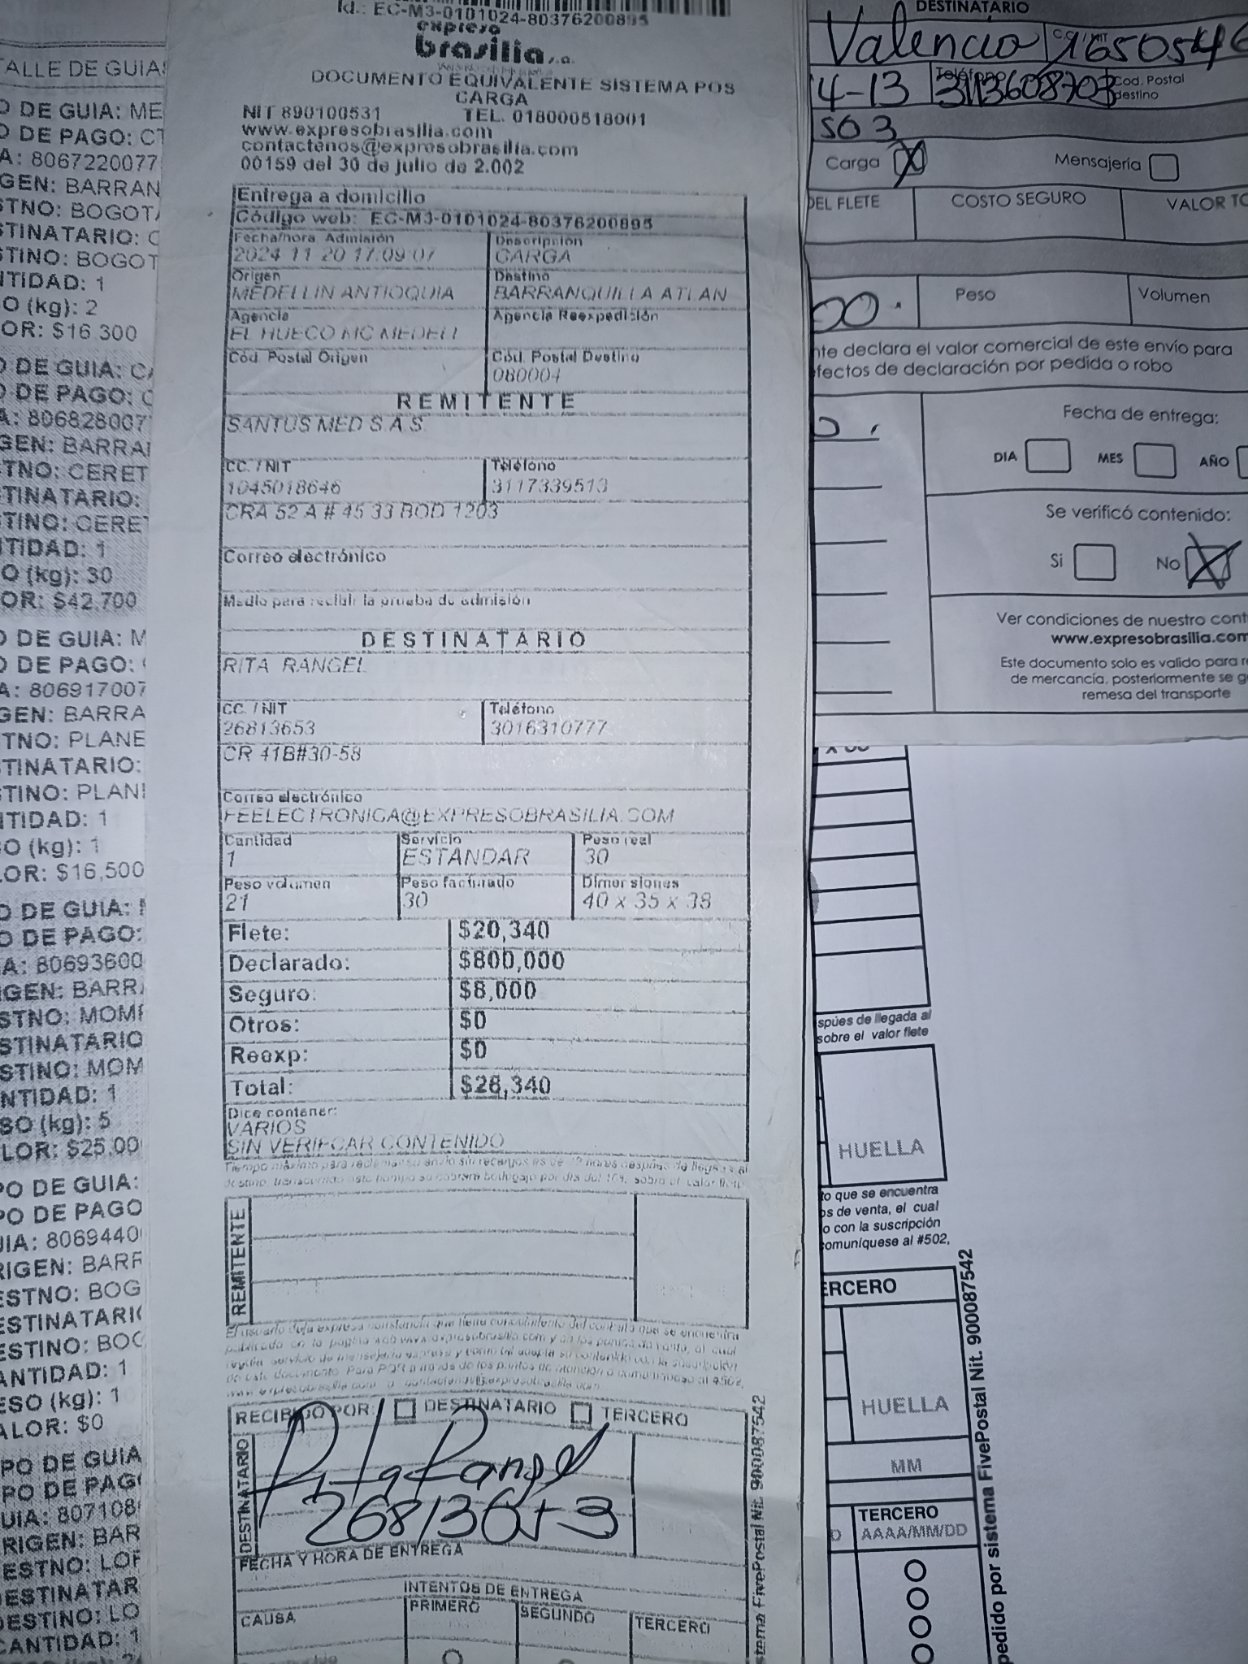 Id.: EC-M3-0101024-80376200895
expreso
brasilia s.a.
DOCUMENTO EQUIVALENTE SISTEMA POS
CARGA
NIT 890100531 TEL. 018000518001
www.expresobrasilia.com
contactenos@expresobrasilia.com
00159 del 30 de julio de 2.002
Entrega a domicilio
Código web: EC-M3-0101024-80376200895
Fecha/hora Admisión Descripción
2024 11 20 17:09:07 CARGA
Origen Destino
MEDELLIN ANTIOQUIA BARRANQUILLA ATLAN
Agencia Agencia Reexpedición
EL HUECO MC MEDELL
Cód. Postal Origen Cód. Postal Destino
080004
REMITENTE
SANTUS MED S A S
CC. / NIT Teléfono
1045018646 3117339513
CRA 52 A # 45 33 BOD 1203
Correo electrónico
Medio para recibir la prueba de admisión
DESTINATARIO
RITA RANGEL
CC. / NIT Teléfono
26813653 3016310777
CR 41B#30-58
Correo electrónico
FEELECTRONICA@EXPRESOBRASILIA.COM
Cantidad Servicio Peso real
1 ESTANDAR 30
Peso volumen Peso facturado Dimensiones
21 30 40 x 35 x 38
Flete: $20,340
Declarado: $800,000
Seguro: $8,000
Otros: $0
Reexp: $0
Total: $28,340
Dice contener:
VARIOS
SIN VERIFICAR CONTENIDO
REMITENTE
RECIBIDO POR: DESTINATARIO TERCERO
DESTINATARIO
Rita Rangel
26813653
FECHA Y HORA DE ENTREGA
INTENTOS DE ENTREGA
CAUSA PRIMERO SEGUNDO TERCERO
stema FivePostal Nit. 900087542
ALLE DE GUIA
O DE GUIA: ME
O DE PAGO: CT
A: 8067220077
GEN: BARRAN
STNO: BOGOTA
TINATARIO: C
STINO: BOGOT
NTIDAD: 1
O (kg): 2
OR: $16 300
O DE GUIA: CA
O DE PAGO: C
A: 806828007
GEN: BARRA
TNO: CERET
TINATARIO:
TINO: CERET
TIDAD: 1
O (kg): 30
OR: $42,700
O DE GUIA: M
O DE PAGO:
A: 806917007
GEN: BARRA
TNO: PLANE
TINATARIO:
TINO: PLAN
TIDAD: 1
O (kg): 1
OR: $16,500
O DE GUIA:
O DE PAGO:
A: 80693600
GEN: BARR
STNO: MOM
STINATARIO
STINO: MOM
NTIDAD: 1
SO (kg): 5
LOR: $25.00
PO DE GUIA:
PO DE PAGO
UIA: 8069440
RIGEN: BARR
ESTNO: BOG
ESTINATARI
ESTINO: BOG
ANTIDAD: 1
ESO (kg): 1
ALOR: $0
PO DE GUIA
PO DE PAG
UIA: 807108
RIGEN: BAR
ESTNO: LOR
ESTINATAR
DESTINO: LO
CANTIDAD: 1
DESTINATARIO
Valencia 1650546
4-13 Teléfono 3113608703 Cod. Postal
destino
SO 3
Carga X Mensajería
DEL FLETE COSTO SEGURO VALOR TO
00. Peso Volumen
nte declara el valor comercial de este envío para
efectos de declaración por pedida o robo
Fecha de entrega:
DIA MES AÑO
Se verificó contenido:
Si No X
Ver condiciones de nuestro cont
www.expresobrasilia.com
Este documento solo es valido para re
de mercancía, posteriormente se g
remesa del transporte
spúes de llegada al
sobre el valor flete
HUELLA
to que se encuentra
os de venta, el cual
o con la suscripción
omuníquese al #502,
ERCERO
HUELLA
MM
TERCERO
AAAA/MM/DD
pedido por sistema FivePostal Nit. 900087542